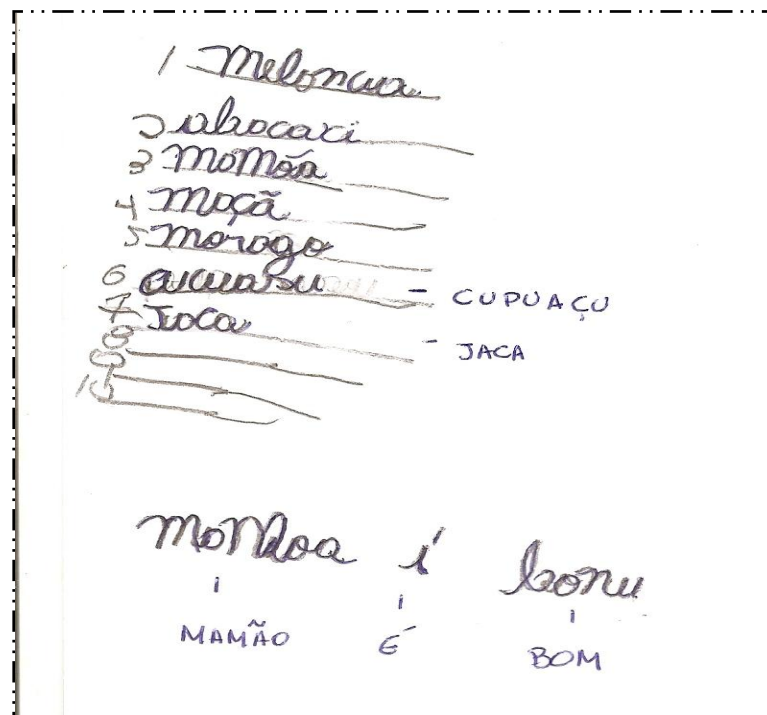 1 Meloncua
2 abocaxi
3 MoMõa
4 Moçã
5 Morogo
6 cucuasu - CUPUAÇU
7 Joca - JACA
8
9
10
MoMdoa é bonu
MAMÃO É BOM